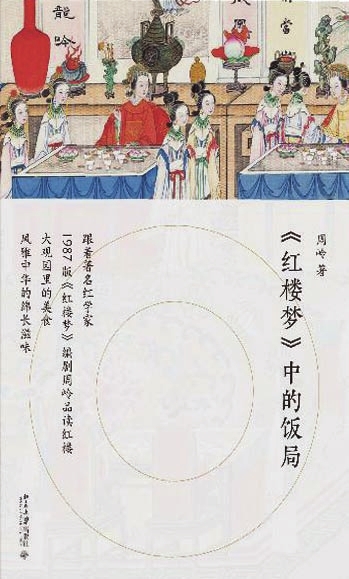 龍吟
周岭 著
《红楼梦》中的饭局
跟着著名红学家
1987 版《红楼梦》编剧周岭品读红楼
大观园里的美食
风雅中华的绵长滋味
北京大学出版社